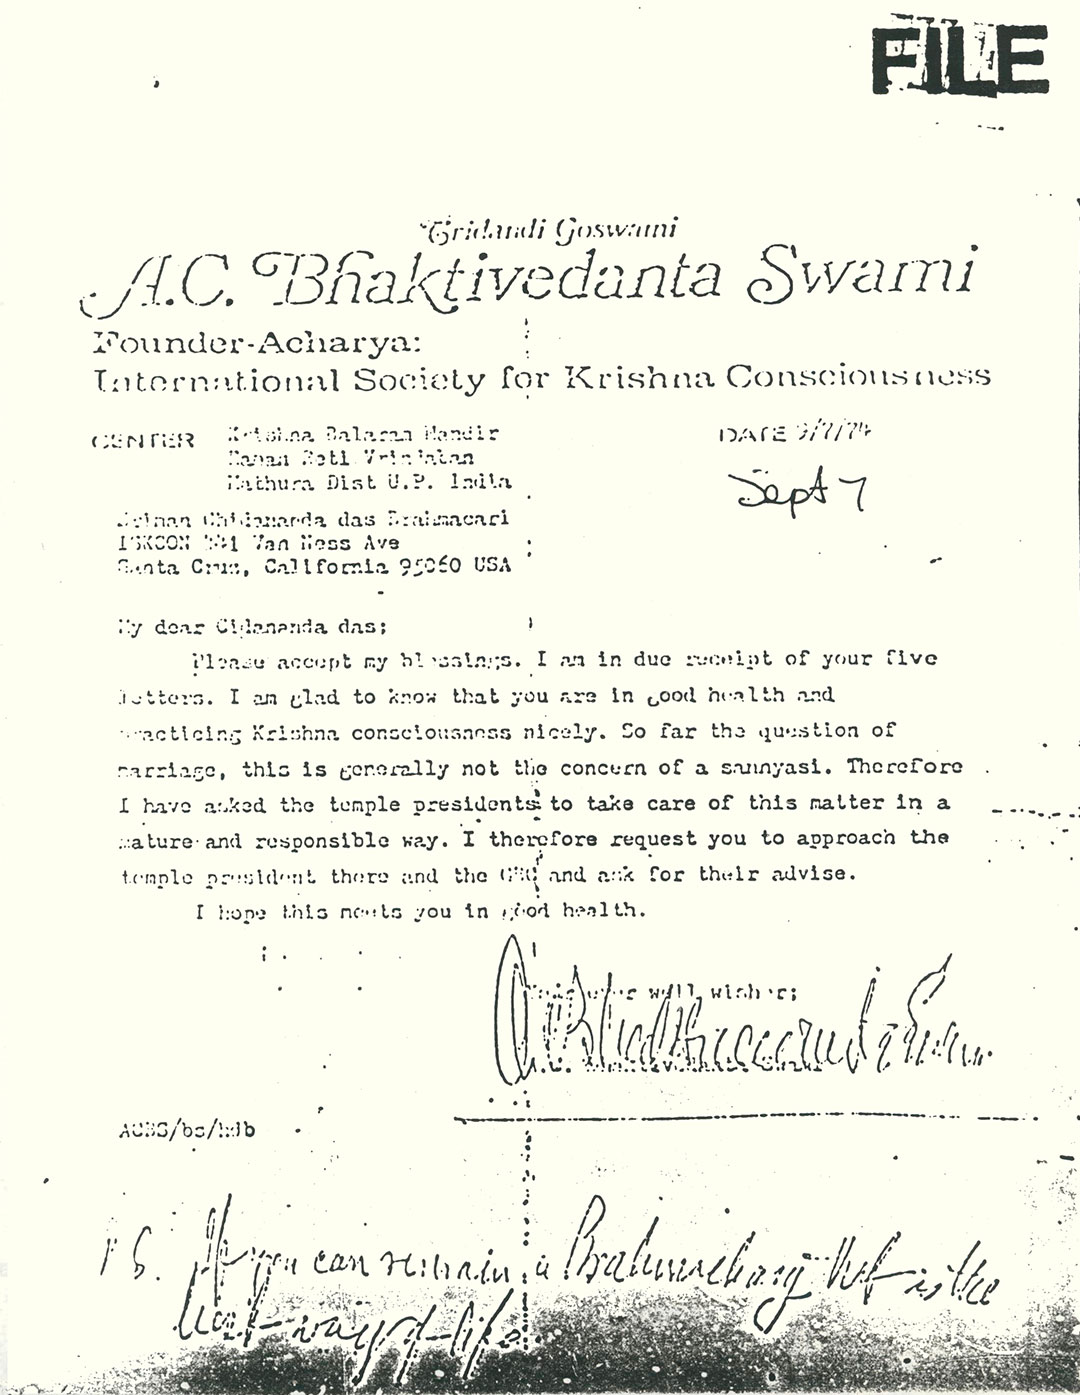 FILE
Tridandi Goswami
A.C. Bhaktivedanta Swami
Founder-Acharya:
International Society for Krishna Consciousness
CENTER Krishna Balaram Mandir
DATE 9/7/74
Raman Reti Vrindaban
Mathura Dist U.P. India
Sept 7
Sriman Chidananda das Brahmacari
ISKCON Van Ness Ave
Santa Cruz, California 95060 USA
My dear Cidananda das;
Please accept my blessings. I am in due receipt of your five
letters. I am glad to know that you are in good health and
practicing Krishna consciousness nicely. So far the question of
marriage, this is generally not the concern of a sannyasi. Therefore
I have asked the temple presidents to take care of this matter in a
mature and responsible way. I therefore request you to approach the
temple president there and the GBC and ask for their advise.
I hope this meets you in good health.
Your ever well wisher;
A.C. Bhaktivedanta Swami
ACBS/bs/hdb
P.S. If you can remain a Brahmachary that is the
best way of life.